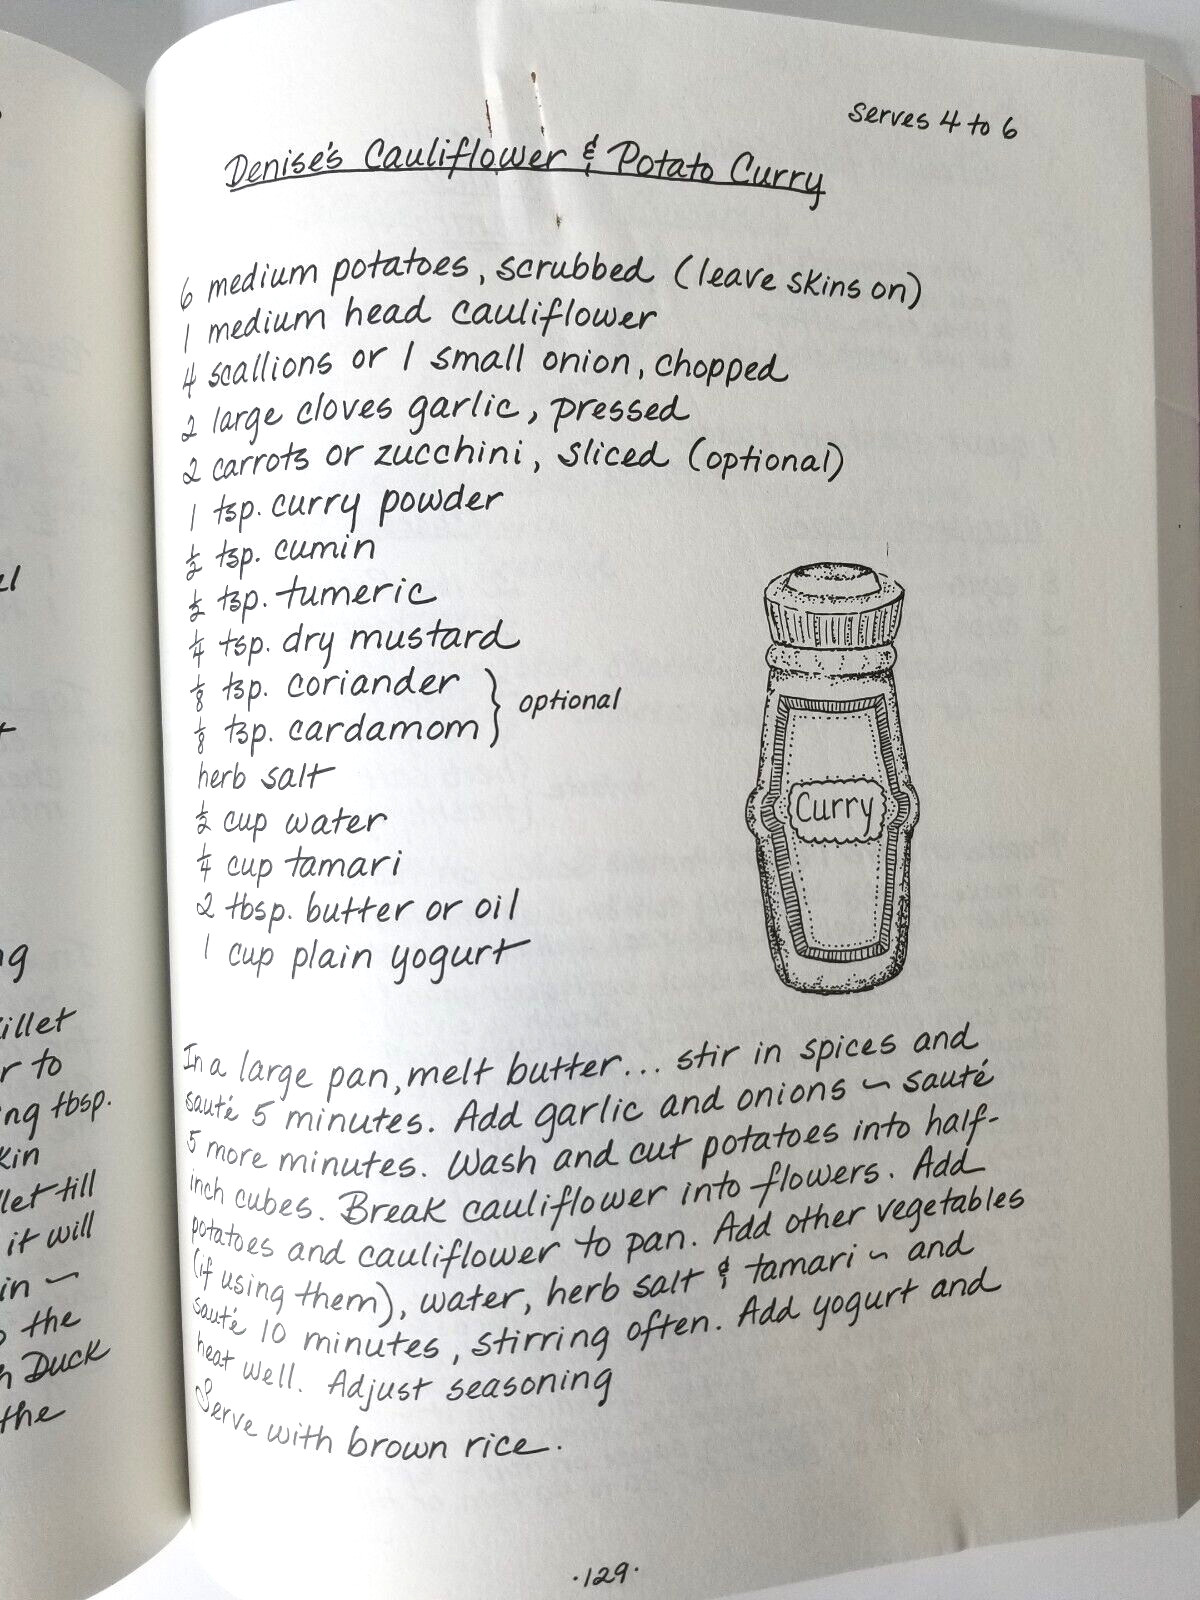 serves 4 to 6
Denise's Cauliflower & Potato Curry
6 medium potatoes, scrubbed (leave skins on)
1 medium head cauliflower
4 scallions or 1 small onion, chopped
2 large cloves garlic, pressed
2 carrots or zucchini, sliced (optional)
1 tsp. curry powder
½ tsp. cumin
½ tsp. tumeric
¼ tsp. dry mustard
⅛ tsp. coriander
⅛ tsp. cardamom } optional
herb salt
½ cup water
¼ cup tamari
2 tbsp. butter or oil
1 cup plain yogurt
Curry
In a large pan, melt butter... stir in spices and
sauté 5 minutes. Add garlic and onions ~ sauté
5 more minutes. Wash and cut potatoes into half-
inch cubes. Break cauliflower into flowers. Add
potatoes and cauliflower to pan. Add other vegetables
(if using them), water, herb salt & tamari ~ and
sauté 10 minutes, stirring often. Add yogurt and
heat well. Adjust seasoning
Serve with brown rice.
·129·